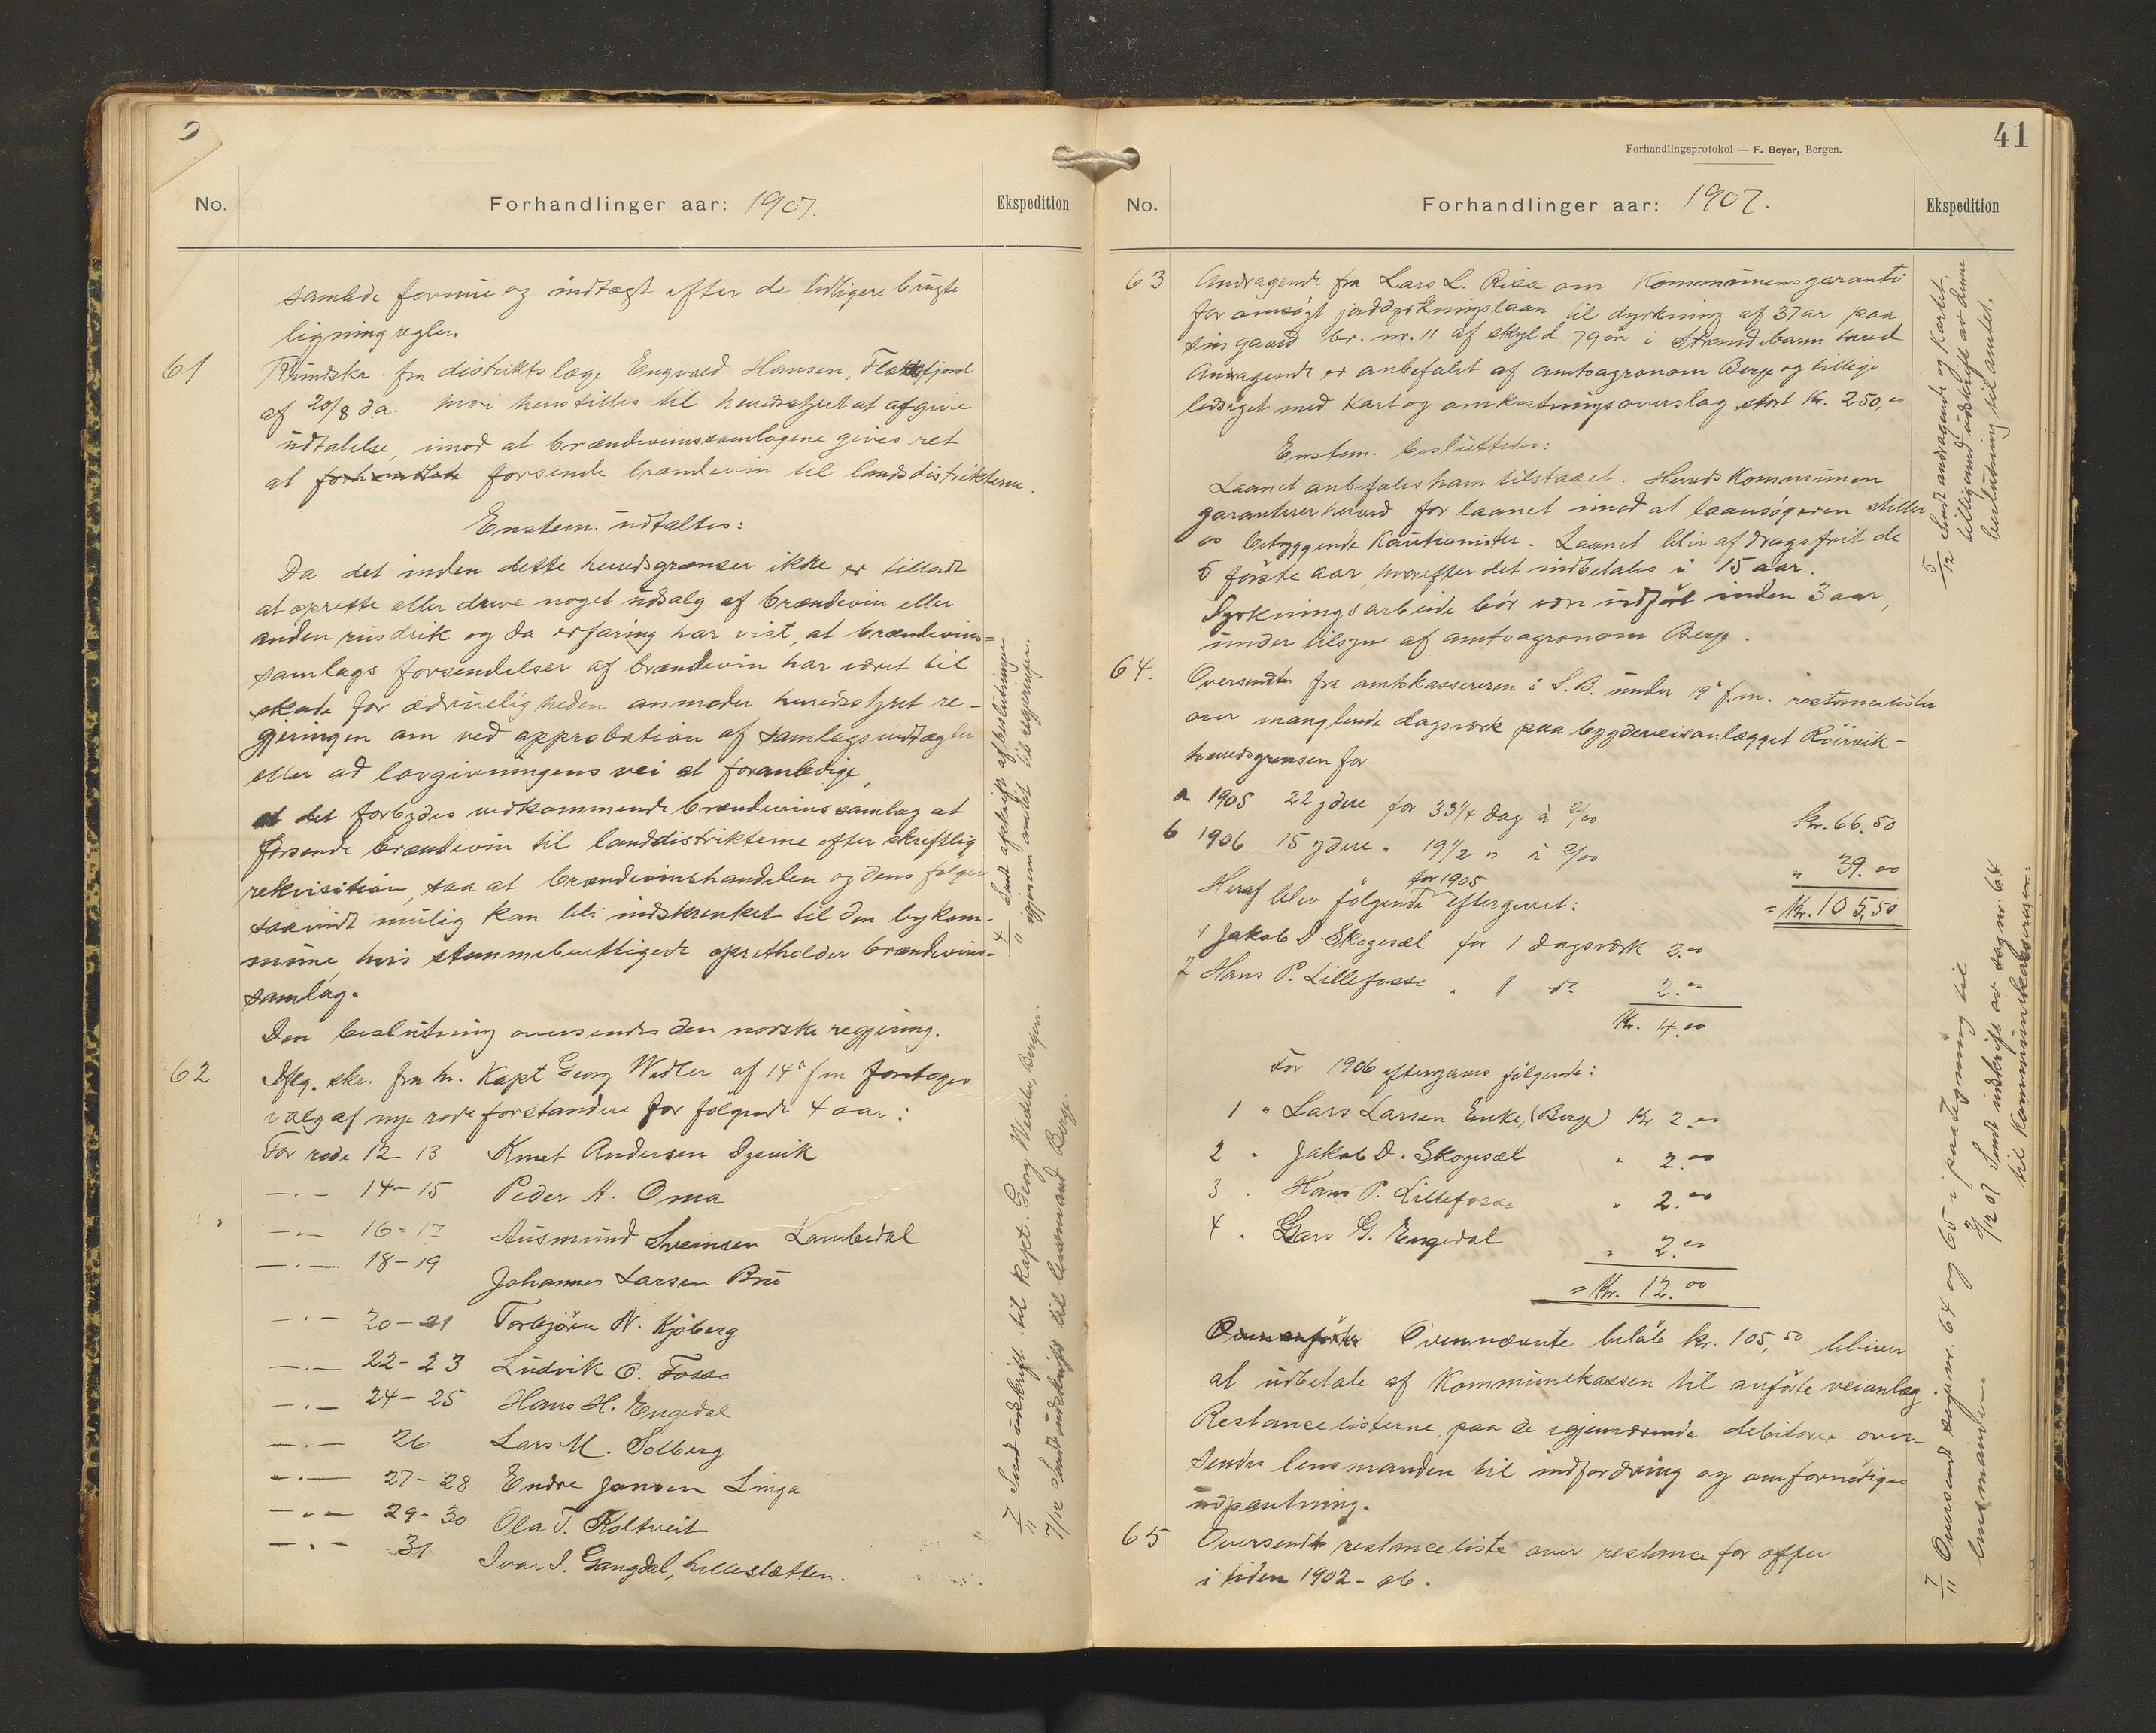 No.
Forhandlinger aar: 1907.
Ekspedition
samlede formue og indtægt efter de tidligere brugte
ligningregler.
61
Rundskr. fra distriktslæge Engvald Hansen, Flækkefjord
af 20/8 d.a. hvori henstilles til herredsstyret at afgive
udtalelse, imod at brændevinssamlagene gives ret
at forsende brændevin til landsdistrikterne.
Enstem. udtaltes:
Da det inden dette herredsgrænser ikke er tilladt
at oprette eller drive noget udsalg af brændevin eller
anden rusdrik og da erfaring har vist, at brændevins=
samlags forsendelser af brændevin har været til
skade for ædrueligheden anmoder herredsstyret re-
gjeringen om ved approbation af samlagsindtægter
eller ad lovgivningens vei at foranledige,
at det forbydes vedkommende brændevinssamlag at
forsende brændevin til landdistrikterne efter skriftlig
rekvisition, saa at brændevinshandelen og dens følger
saavidt mulig kan bli indskrenket til den bykom-
mune, hvis stemmeberettigede opretholder brændevins-
samlag.
Den beslutning oversendes den norske regjering.
62
Iflg. skr. fra hr. Kapt Georg Wedler af 14d f.m foretoges
valg af nye rodeforstandere for følgende 4 aar:
For rode 12 13 Knut Andersen Dysvik
—.— 14-15 Peder A. Oma
—.— 16-17 Ausmund Sveinsen Lambedal
—.— 18-19 Johannes Larsen Bru
—.— 20-21 Torbjørn N. Kjøberg
—.— 22-23 Ludvik O. Fosse
—.— 24-25 Hans H. Engedal
—.— 26 Lars M. Solberg
—.— 27-28 Endre Jansen Linga
—"— 29-30 Ola T. Koltveit
—.— 31 Ivar I. Gangdal, Lilleslætten.
4/11 Sendt afskrift af beslutningen
igjennem amtet til regjeringen.
7/11 Sendt udskrift til Kapt. Georg Wedeler, Bergen.
7/12 Sendt udskrift til lensmand Berge.
41
Forhandlingsprotokol — F. Beyer, Bergen.
No.
Forhandlinger aar: 1907.
Ekspedition
63
Andragende fra Lars L. Risa om Kommunens garanti
for ansøgt jorddyrkningslaan til dyrkning af 37 ar paa
sin gaard br. nr. 11 af skyld 79 øre i Strandebarm herred
Andragende er anbefalet af amtsagronom Berge og tillige
ledsaget med kart og omkostningsoverslag, stort Kr. 250,00
Enstem. besluttedes:
Laanet anbefales ham tilstaaet. Herredskommunen
garanterer herved for laanet imod at laansøgeren stiller
os betryggende kautionister. Laanet blir afdragsfrit de
5 første aar, hvorefter det indbetales i 15 aar.
Dyrkningsarbeide bør være udført inden 3 aar,
under tilsyn af amtsagronom Berge.
64.
Oversendte fra amtskassereren i S.B. under 19d f.m. restancelister
over manglende dagsværk paa bygdeveisanlægget Röirvik-
herredsgrensen for
a 1905 22 ydere for 33 1/4 dag à 2/00 Kr. 66.50
b 1906 15 ydere " 19 1/2 " à 2/00 " 39.00
= Kr. 105,50
Heraf blev følgende for 1905 eftergivet:
1 Jakob D. Skogesæl for 1 dagsværk 2.00
2 Hans P. Lillefosse " 1 do 2.00
Kr. 4.00
For 1906 eftergaves følgende:
1 " Lars Larsen Enke, (Berge) Kr 2.00
2 " Jakob D. Skogesæl " 2.00
3 " Hans P. Lillefosse " 2.00
4 " Lars G. Engedal " 2.00
= Kr. 12.00
Ovennævnte beløb kr. 105,50 bliver
at udbetale af Kommunekassen til anførte veianlæg.
Restancelisterne paa de igjenværende debitorer over-
sendes lensmanden til indfordring og omfornødiges
udpantning.
65
Oversendt restanceliste over restance for offer
i tiden 1902-06.
5/12 Sendt andragende og kartet,
tilligemed udskrift av denne
beslutning til amtet.
7/11 Oversendt sag nr. 64 og 65 i paategning til
lensmanden.
2/12 07 Sendt udskrift av sag nr. 64
til kommunekassereren.